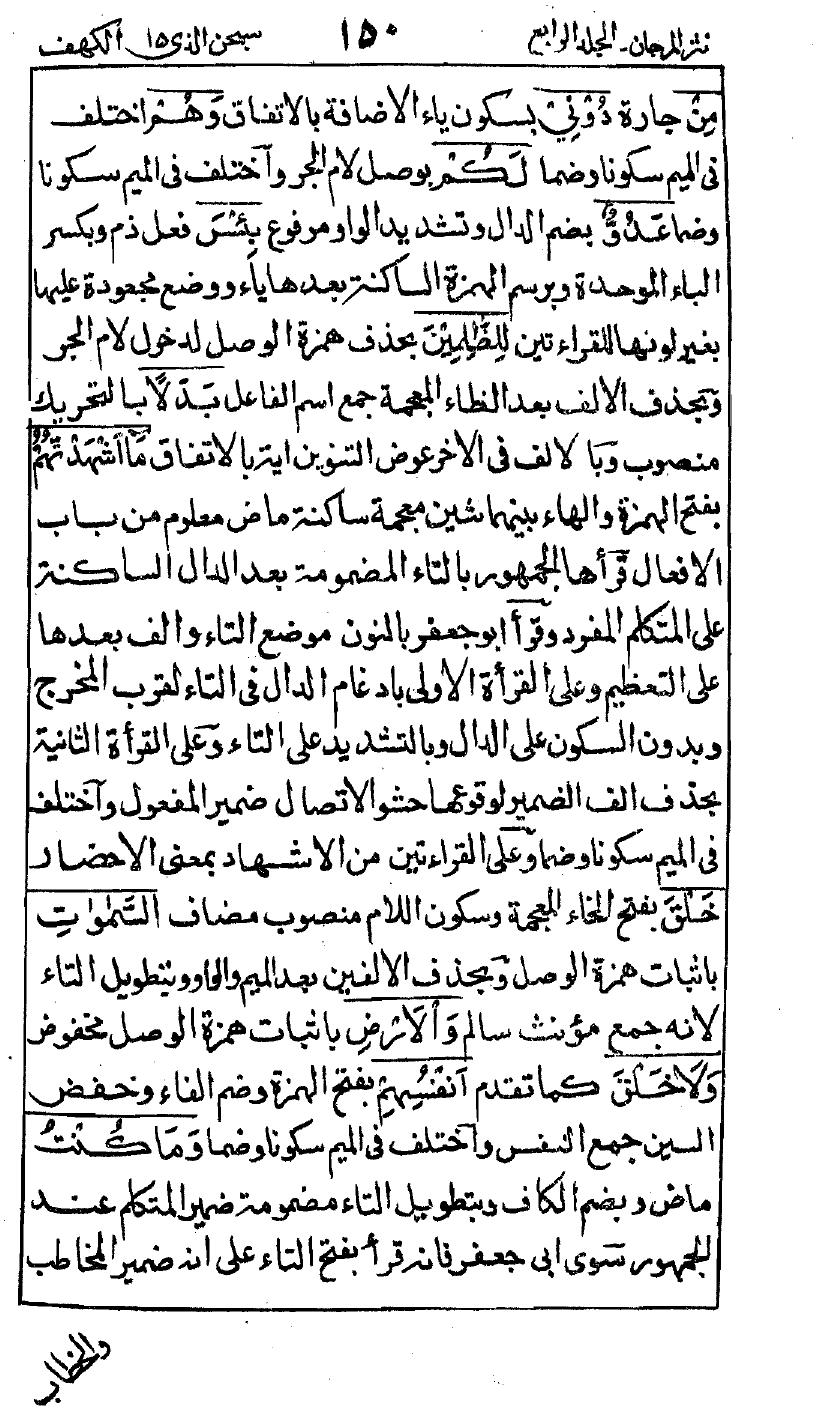 نثر المرجان۔ المجلد الرابع ١٥٠ سبحن الذى ١٥ الكهف
مِنْ جارة دُوْنِيْ بسكون ياء الاضافة بالاتفاق وَهُمْ اختلف
فى الميم سكونا وضما لَكُمْ بوصل لام الجر وآختلف فى الميم سكونا
وضما عَدُوٌّ بضم الدال وتشديد الواو مرفوع بِئْسَ فعل ذم وبكسر
الباء الموحدة وبرسم الهمزة الساكنة بعدها ياء ووضع مجعودة عليها
بغير لونها للقراءتين لِلظّٰلِمِيْنَ بحذف همزة الوصل لدخول لام الجر
وَبحذف الالف بعد الظاء المعجمة جمع اسم الفاعل بَدَلًا بالتحريك
منصوب وَبالالف فى الاخر عوض التنوين اية بالاتفاق مَآ اَشْهَدْتُّهُمْ
بفتح الهمزة والهاء بينهما شين معجمة ساكنة ماض معلوم من باب
الافعال قرأها الجمهور بالتاء المضمومة بعد الدال الساكنة
على المتكلم المفرد وقرأ ابو جعفر بالنون موضع التاء والف بعدها
على التعظيم وعلى القرأة الاولى بادغام الدال فى التاء لقرب المخرج
وبدون السكون على الدال وبالتشديد على التاء وَعلى القرأة الثانية
بحذف الف الضمير لوقوعها حشوا لاتصال ضمير المفعول وآختلف
فى الميم سكونا وضما وَعلى القراءتين من الاشهاد بمعنى الاحضار
خَلْقَ بفتح الخاء المعجمة وسكون اللام منصوب مضاف السَّمٰوٰتِ
باثبات همزة الوصل وَبحذف الالفين بعد الميم والواو وبتطويل التاء
لانه جمع مؤنث سالم وَالْاَرْضِ باثبات همزة الوصل مخفوض
وَلَا خَلْقَ كما تقدم اَنْفُسِهِمْ بفتح الهمزة وضم الفاء وخفض
السين جمع النفس وآختلف فى الميم سكونا وضما وَمَا كُنْتُ
ماض وبضم الكاف وبتطويل التاء مضمومة ضمير المتكلم عند
الجمهور سوى ابى جعفر فانه قرأ بفتح التاء على انه ضمير المخاطب
والخطاب